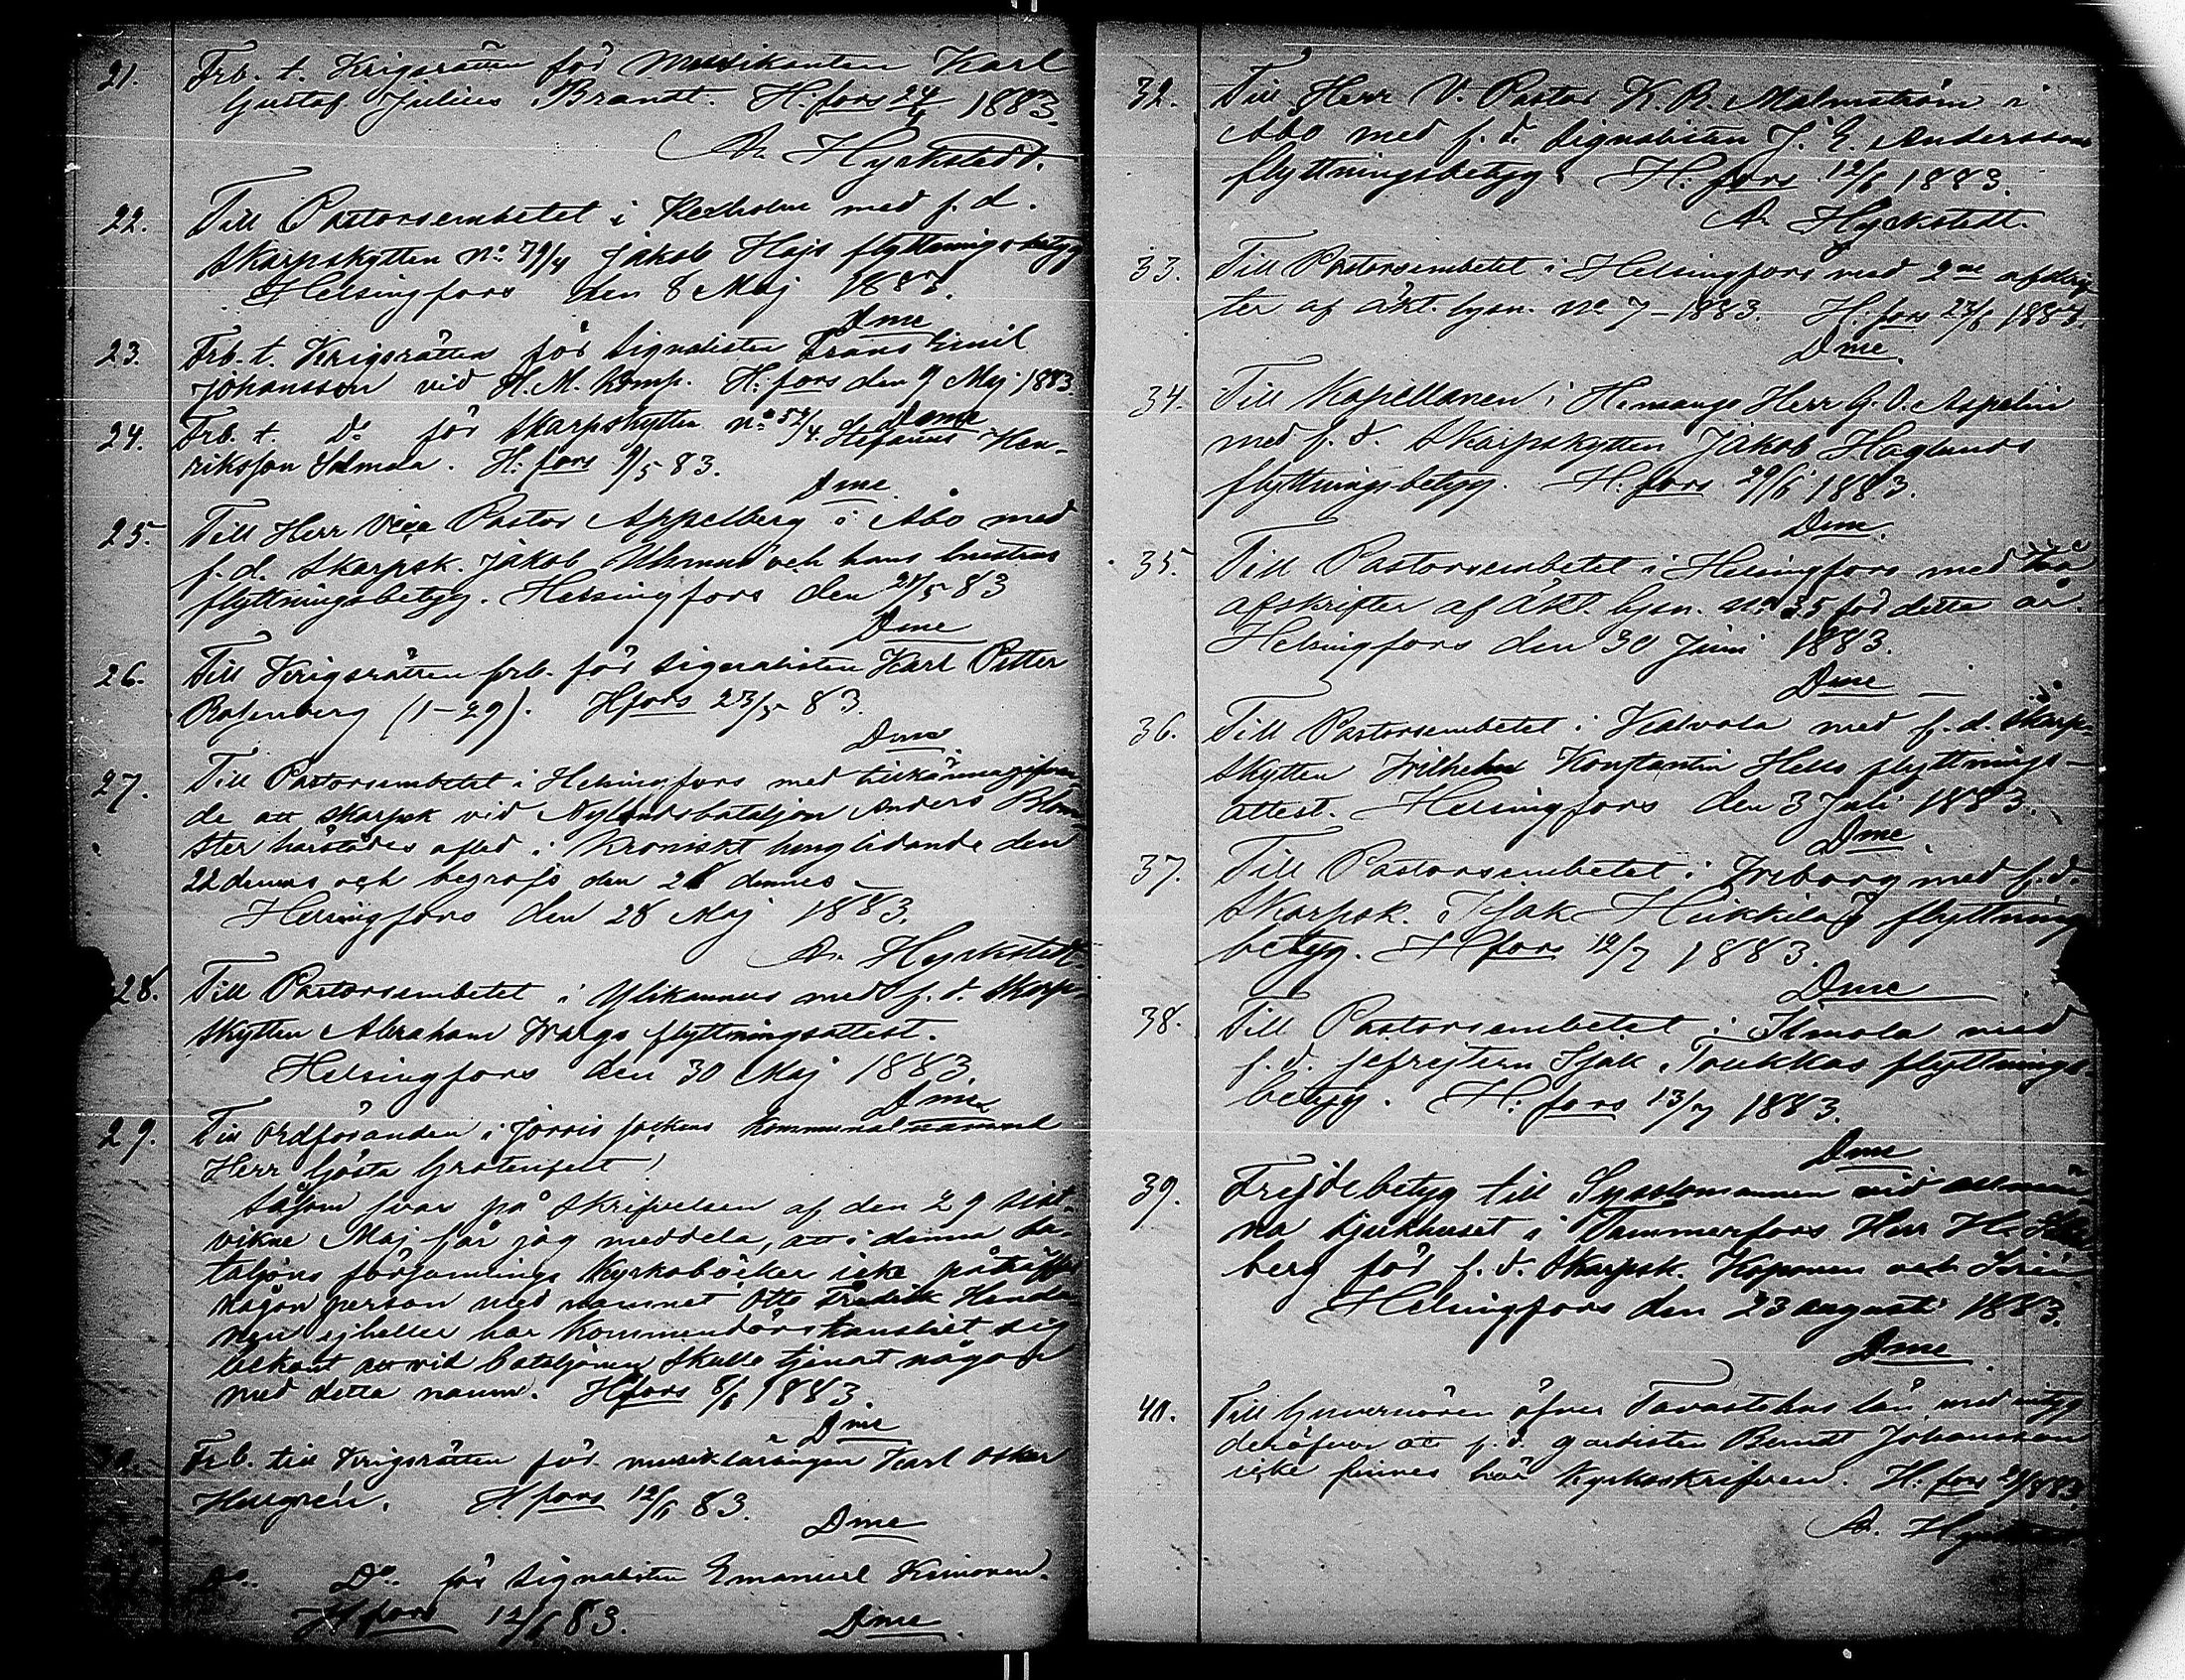 21. Frb. t. Krigsrätten för Musikanten Karl
Gustaf Julius Brandt. H:fors 24/4 1883.
A. Hyrkstedt.
22. Till Pastorsembetet i Kexholm med f. d.
Skarpskytten No: 79/4 Jakob Hajs flyttningsbetyg
Helsingfors den 8 Maj 1883.
Dme
23. Frb. t. Krigsrätten för Signalisten Frans Emil
Johansson vid H. M. Komp. H:fors den 9 Maj 1883.
Dme
24. Frb. t. Do för Skarpskytten No: 54/4 Stefanus Hen-
riksson Salmela. H:fors 9/5 83.
Dme
25. Till Herr Vice Pastor Appelberg i Åbo med
f. d. Skarpsk. Jakob och hans hustrus
flyttningsbetyg. Helsingfors den 21/5 83
Dme
26. Till Krigsrätten frb. för Signalisten Karl Petter
Rosenberg (1-29). Hfors 23/5 83.
Dme
27. Till Pastorsembetet i Helsingfors med tillkännagifvan-
de att skarpsk vid Nylandsbataljon Anders Blom-
ster härstädes afled i Kroniskt lunglidande den
22 dennes och begrafs den 28 dennes
Helsingfors den 28 Maj 1883.
A. Hyrkstedt
28. Till Pastorsembetet i Ylikannus med f. d. Skarp-
skytten Abraham Walgs flyttningsattest.
Helsingfors den 30 Maj 1883.
Dme
29. Till Ordföranden i Jorois sockens Kommunalnämnd
Herr Gösta Grotenfelt!
Såsom svar på skrifvelsen af den 29 sist-
vikne Maj får jag meddela, att i denna ba-
taljons församlings Kyrkoböcker icke påträffas
någon person med namnet Otto Fredrik
nen ejheller har Kommendörskansliet sig
bekant att vid bataljonen skulle tjenat någon
med detta namn. Hfors 8/6 1883
Dme
30. Frb. till Krigsrätten för musiklärlingen Karl Oskar
Hellgrén. Hfors 12/6 83.
Dme
Do. Do. för Signalisten Emanuel Kiminen.
Hfors 12/6 83. Dme.
32. Till Herr V. Pastor K. B. Malmström i
Åbo med f. d. Signalisten J. E. Anderssons
flyttningsbetyg. H:fors 12/6 1883.
A. Hyrkstedt.
33. Till Pastorsembetet i Helsingfors med 2ne afskrif-
ter af äkt. lysn. No 7-1883. H:fors 27/6 1883.
Dme.
34. Till Kapellanen i Himango Herr G. O. Aspelin
med f. d. Skarpskytten Jakob Haglunds
flyttningsbetyg. H:fors 29/6 1883.
Dme.
35. Till Pastorsembetet i Helsingfors med två
afskrifter af äkt. lysn. No: 35 för detta år.
Helsingfors den 30 Juni 1883.
Dme
36. Till Pastorsembetet i Kalvola med f. d. Skarp-
skytten Wilhelm Konstantin Hells flyttnings-
attest. Helsingfors den 3 Juli 1883.
Dme
37. Till Pastorsembetet i Wiborg med f. d.
Skarpsk. Isak Heikkiläs flyttnings
betyg. Hfors 12/7 1883.
Dme
38. Till Pastorsembetet i Ilmola med
f. d. gefrejtern Isak Toukkas flyttnings-
betyg. H:fors 13/7 1883.
Dme
39. Frejdebetyg till Sysslomannen vid allmän-
na sjukhuset i Tammerfors Herr H.
berg för f. d. Skarpsk. Koponen och Sirén
Helsingfors den 23 augusti 1883.
Dme
40. Till Guvernören öfver Tavastehus län med intyg
deröfver att f. d. gardisten Berndt Johansson
icke finnes här Kyrkoskrifven. H:fors 29/8 83
A. Hyrkstedt